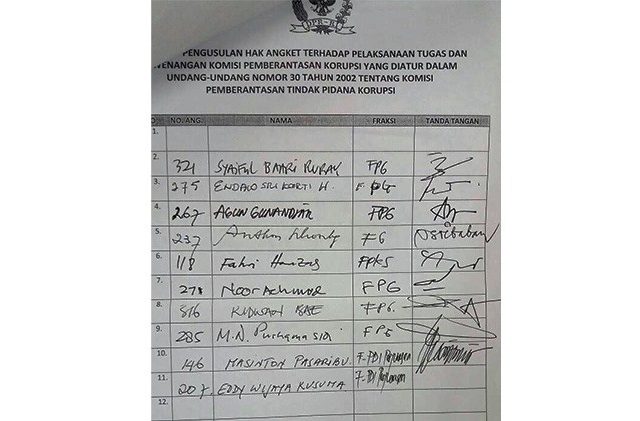 DPR-R
PENGUSULAN HAK ANGKET TERHADAP PELAKSANAAN TUGAS DAN
VENANGAN KOMISI PEMBERANTASAN KORUPSI YANG DIATUR DALAM
UNDANG-UNDANG NOMOR 30 TAHUN 2002 TENTANG KOMISI
PEMBERANTASAN TINDAK PIDANA KORUPSI
NO. ANG. NAMA FRAKSI TANDA TANGAN
1.
2. 321 SYAIFUL BAHRI RURAY FPG
3. 275 ENDANG SRI KARTI H. F. PG
4. 267 AGUN GUNANDJAR FPG
5. 237 FG
6. 118 Fahri Hamzah FPKS
7. 271 Noor Achmad FPG
8. 316 RIDWAN BAE FPG.
9. 285 M.N. Purnamasidi FPG
10. 146 MASINTON PASARIBU F-PDI Perjuangan
11. 207. EDDY WIJAYA KUSUMA F-PDI Perjuangan
12.